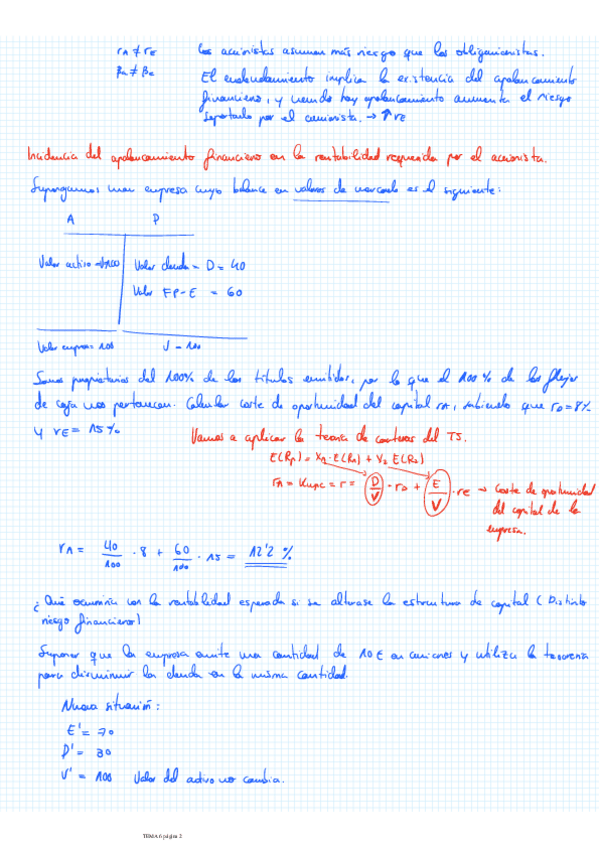 rA ≠ rE    los accionistas asumen más riesgo que los obligacionistas.
βA ≠ βE    El endeudamiento implica la existencia del apalancamiento
financiero, y cuando hay apalancamiento aumenta el riesgo
soportado por el accionista. → ↑ rE
Incidencia del apalancamiento financiero en la rentabilidad requerida por el accionista.
Supongamos una empresa cuyo balance en valores de mercado es el siguiente:
A    P
Valor activo = 100    Valor deuda = D = 40
Valor FP = E = 60
Valor empresa = 100    V = 100
Somos propietarios del 100% de los títulos emitidos, por lo que el 100% de los flujos
de caja nos pertenecen. Calcular coste de oportunidad del capital rA, sabiendo que rD = 8%
y rE = 15%    Vamos a aplicar la teoría de carteras del T5.
E(Rp) = X1 · E(R1) + X2 E(R2)
rA = Kupc = r = D/V · rD + E/V · rE → Coste de oportunidad
del capital de la
empresa.
rA = 40/100 · 8 + 60/100 · 15 = 12'2 %
¿Qué ocurriría con la rentabilidad esperada si se alterase la estructura de capital (Distinto
riesgo financiero)
Suponer que la empresa emite una cantidad de 10€ en acciones y utiliza la tesorería
para disminuir la deuda en la misma cantidad.
Nueva situación:
E' = 70
D' = 30
V' = 100    Valor del activo no cambia.
TEMA 6 página 2